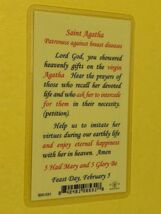 Saint Agatha
Patroness against breast diseases
Lord God, you showered
heavenly gifts on the virgin
Agatha Hear the prayers of
those who recall her devoted
life and who ask her to intercede
for them in their necessities.
(petition)
Help us to imitate her
virtues during our earthly life
and enjoy eternal happiness
with her in heaven. Amen
5 Hail Mary and 5 Glory Be
Feast Day, February 5